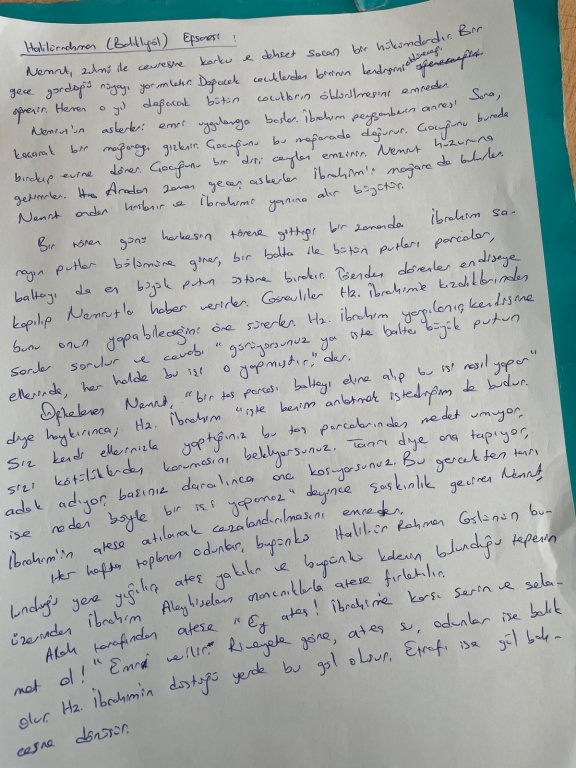 Halilürrahman (Balıklıgöl) Efsanesi :
Nemrut, zulmü ile çevresine korku ve dehşet saçan bir hükümdardır. Bir
gece gördüğü rüyayı yorumlatır. Doğacak çocuklardan birinin kendisini öldüreceğini
öğrenir. Hemen o yıl doğacak bütün çocukların öldürülmesini emreder.
Nemrut'un askerleri emri uygulamaya başlar. İbrahim peygamberin annesi Sara,
kaçarak bir mağaraya gizlenir. Çocuğunu bu mağarada doğurur. Çocuğunu burada
bırakıp evine döner. Çocuğunu bir dişi ceylan emzirir. Nemrut huzuruna
getirirler. Aradan zaman geçer, askerler İbrahim'i mağarada bulurlar.
Nemrut ondan hoşlanır ve İbrahimi yanına alır büyütür.
Bir tören günü herkesin törene gittiği bir zamanda İbrahim sa-
rayın putlar bölümüne girer, bir balta ile bütün putları parçalar,
baltayı da en büyük putun üstüne bırakır. Törenden dönenler endişeye
kapılıp Nemrut'a haber verirler. Görevliler Hz. İbrahim'e kızdıklarından
bunu onun yapabileceğini öne sürerler. Hz. İbrahim yargılanır, kendisine
sorular sorulur ve cevabı "görüyorsunuz ya işte balta büyük putun
ellerinde, her halde bu işi o yapmıştır," der.
Öfkelenen Nemrut, "bir taş parçası baltayı eline alıp bu işi nasıl yapar"
diye haykırınca, Hz. İbrahim "işte benim anlatmak istediğim de budur.
Siz kendi ellerinizle yaptığınız bu taş parçalarından medet umuyor,
sizi kötülüklerden korumasını bekliyorsunuz. Tanrı diye ona tapıyor,
adak adıyor, başınız daralınca ona koşuyorsunuz. Bu gerçekten tanrı
ise neden böyle bir işi yapamaz" deyince şaşkınlık geçiren Nemrut,
İbrahim'in ateşe atılarak cezalandırılmasını emreder.
Her hafta toplanan odunlar, bugünkü Halilür Rahman Gölünün bu-
lunduğu yere yığılır, ateş yakılır ve bugünkü kalenin bulunduğu tepenin
üzerinden İbrahim Aleyhisselam mancınıklarla ateşe fırlatılır.
Allah tarafından ateşe "Ey ateş! İbrahim'e karşı serin ve sela-
met ol!" Emri verilir. Rivayete göre, ateş su, odunlar ise balık
olur. Hz. İbrahimin düştüğü yerde bu göl oluşur. Etrafı ise gül bah-
çesine dönüşür.